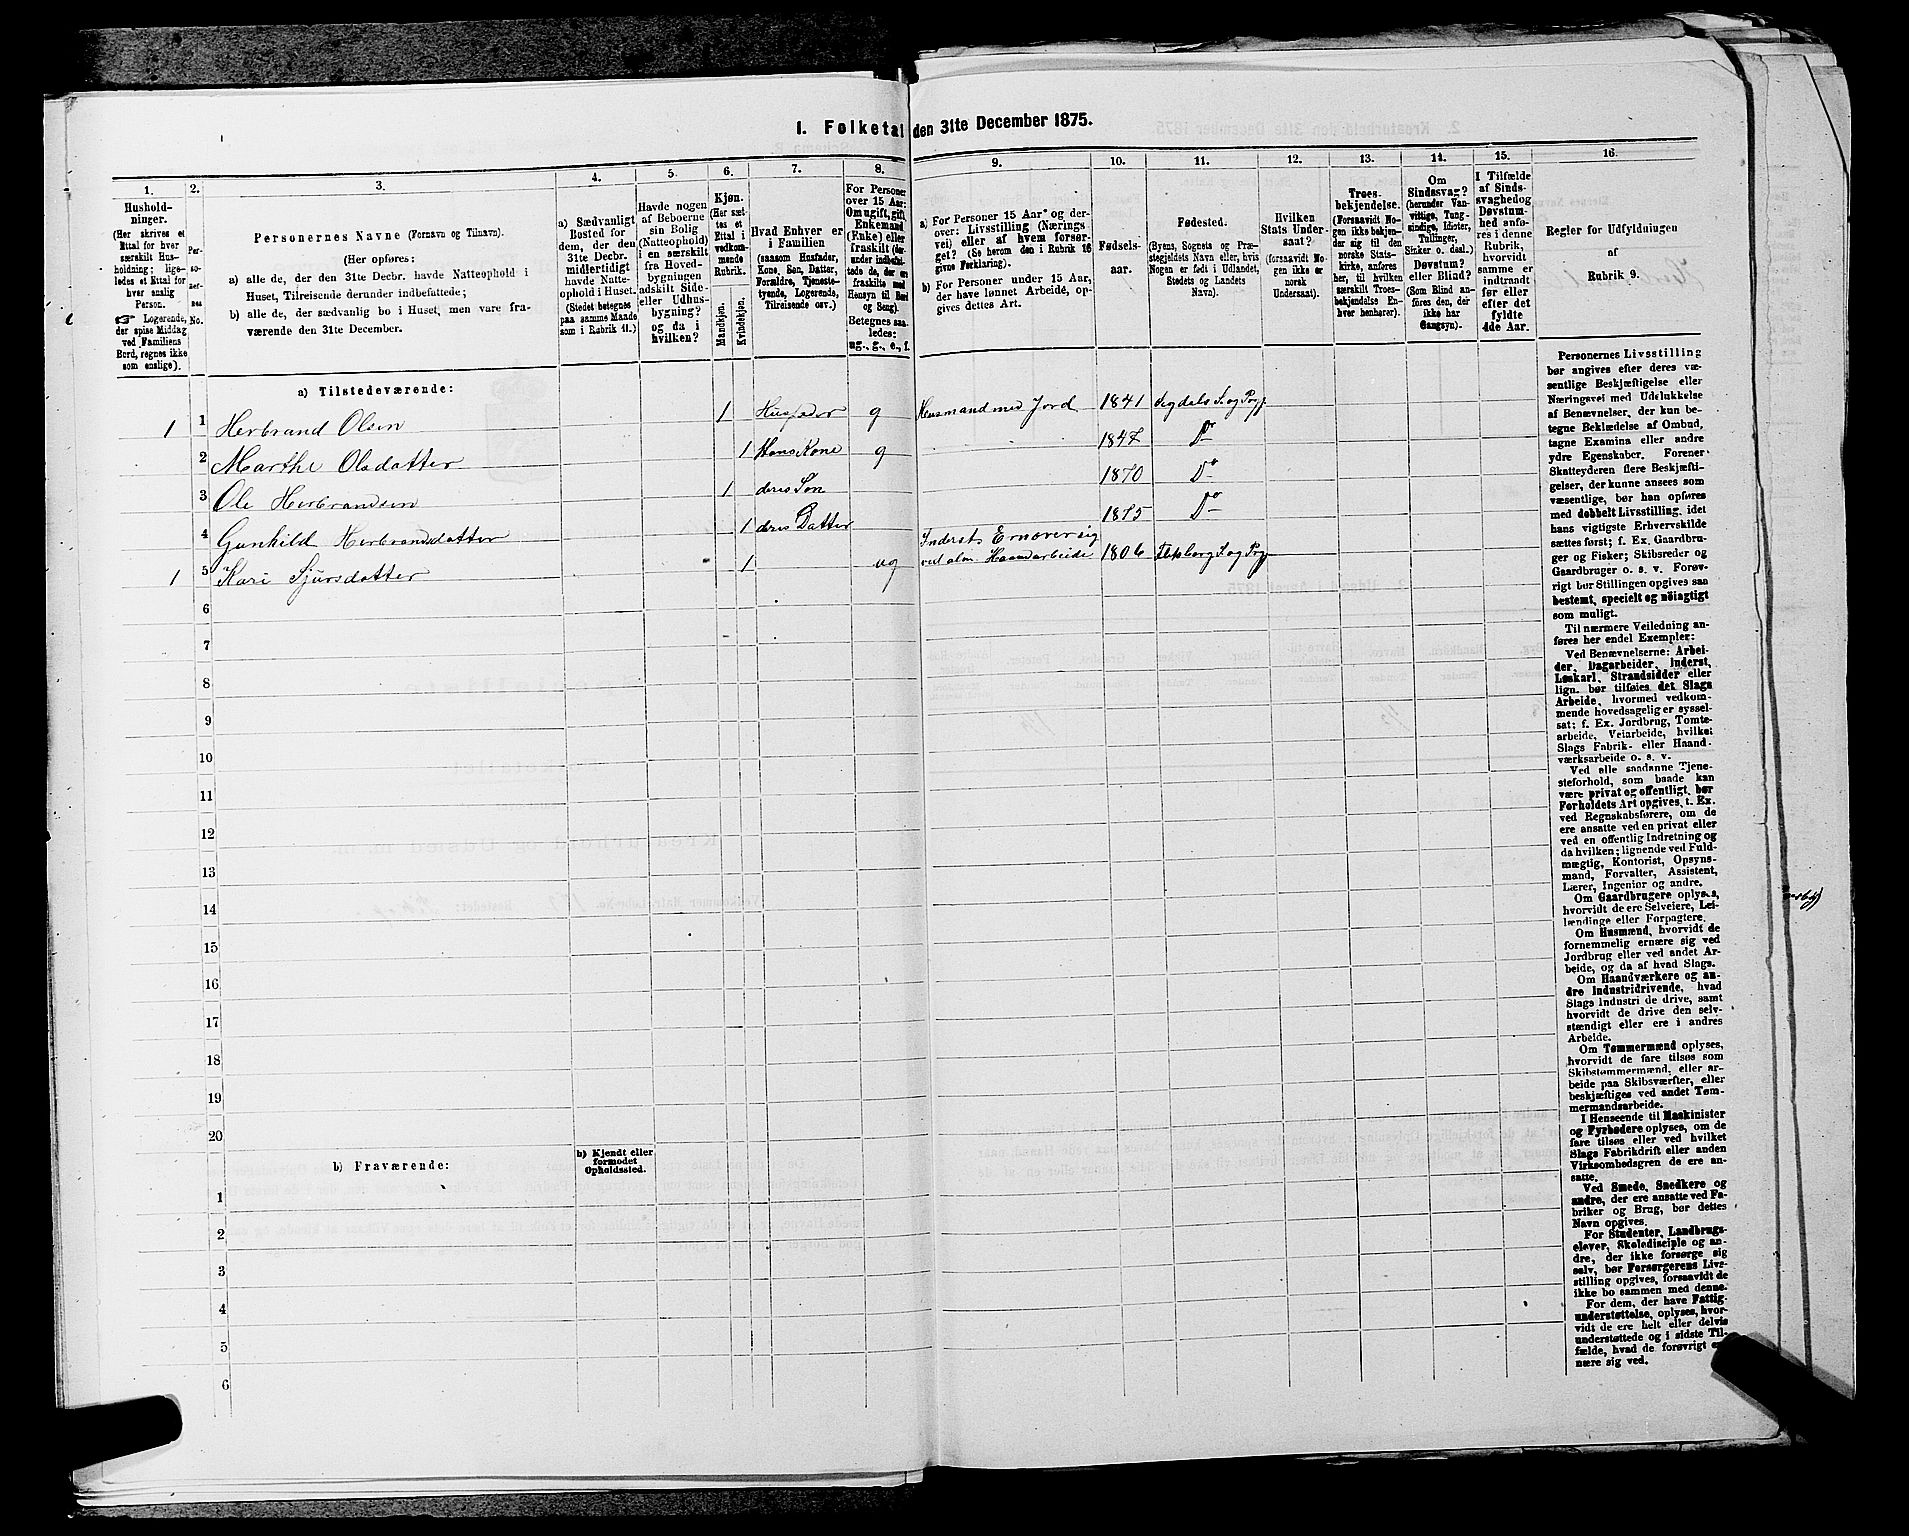 1. Folketal den 31te December 1875.
1.
Hushold-
ninger.
(Her skrives et
Ettal for hver
særskilt Hus-
holdning; lige-
ledes et Ettal for
hver enslig
Person.
☞ Logerende,
der spise Middag
ved Familiens
Bord, regnes ikke
som enslige).
2.
Per-
so-
ner-
nes
No.
3.
Personernes Navne (Fornavn og Tilnavn).
(Her opføres:
a) alle de, der den 31te Decbr. havde Natteophold i
Huset, Tilreisende derunder indbefattede;
b) alle de, der sædvanlig bo i Huset, men vare fra-
værende den 31te December.
4.
a) Sædvanligt
Bosted for
dem, der den
31te Decbr.
midlertidigt
havde Natte-
ophold i Huset.
(Stedet betegnes
paa samme Maade
som i Rubrik 11.)
5.
Havde nogen
af Beboerne
sin Bolig
(Natteophold)
i en særskilt
fra Hoved-
bygningen
adskilt Side-
eller Udhus-
bygning?
og da i
hvilken?
6.
Kjøn.
(Her sæt-
tes et
Ettal i
vedkom-
mende
Rubrik.
Mandkjøn.
Kvindekjøn.
7.
Hvad Enhver er
i Familien
(saasom Husfader,
Kone, Søn, Datter,
Forældre, Tjeneste-
tyende, Logerende,
Tilreisende osv.)
8.
For Personer
over 15 Aar:
Om ugift, gift,
Enkemand
(Enke) eller
fraskilt (der-
under indbefat-
tede de, der ere
fraskilte med
Hensyn til Bord
og Seng).
Betegnes saa-
ledes:
ug., g., e., f.
9.
a) For Personer 15 Aar og der-
over: Livsstilling (Nærings-
vei) eller af hvem forsør-
get? (Se herom den i Rubrik 16
givne Forklaring).
b) For Personer under 15 Aar,
der have lønnet Arbeide, op-
gives dettes Art.
10.
Fødsels-
aar.
11.
Fødested.
(Byens, Sognets og Præ-
stegjeldets Navn eller, hvis
Nogen er født i Udlandet,
Stedets og Landets
Navn).
12.
Hvilken
Stats Under-
saat?
(forsaavidt No-
gen ikke er
norsk
Undersaat).
13.
Troes-
bekjendelse.
(Forsaavidt No-
gen ikke bekjen-
der sig til den
norske Stats-
kirke, anføres
her, til hvilken
særskilt Troes-
bekjendelse En-
hver henhører).
14.
Om
Sindssvag?
(herunder Van-
vittige, Tung-
sindige, Idioter,
Tullinger,
Sinker o. desl.)
Døvstum?
eller Blind?
(Som Blind an-
føres den, der
ikke har
Gangsyn).
15.
I Tilfælde
af Sinds-
svaghed og
Døvstum-
hed anfø-
res i denne
Rubrik,
hvorvidt
samme er
indtraadt
før eller
efter det
fyldte
4de Aar.
16.
Regler for Udfyldningen
af
Rubrik 9.
a) Tilstedeværende:
1 1 Herbrand Olsen 1 Husfader g Husmand med Jord 1841 Sigdals S. og Prgj.
2 Marthe Olsdatter 1 Hans Kone g 1847 Do
3 Ole Herbrandsen 1 deres Søn 1870 Do
4 Gunhild Herbrandsdatter 1 deres Datter 1875 Do
1 5 Kari Sjursdatter 1 ug Inderst Ernærer sig
ved alm. Haandarbeide 1806 S. og Prgj
6
7
8
9
10
11
12
13
14
15
16
17
18
19
20
b) Fraværende:
b) Kjendt eller
formodet
Opholdssted.
1
2
3
4
5
6
Personernes Livsstilling
bør angives efter deres væ-
sentlige Beskjæftigelse eller
Næringsvei med Udelukkelse
af Benævnelser, der kun be-
tegne Beklædelse af Ombud,
tagne Examina eller andre
ydre Egenskaber. Forener
Skatteyderen flere Beskjæfti-
gelser, der kunne ansees som
væsentlige, bør han opføres
med dobbelt Livsstilling, idet
hans vigtigste Erhvervskilde
sættes først; f. Ex. Gaardbru-
ger og Fisker; Skibsreder og
Gaardbruger o. s. v. Forøv-
rigt bør Stillingen opgives saa
bestemt, specielt og nøiagtigt
som muligt.
Til nærmere Veiledning an-
føres her endel Exempler:
Ved Benævnelserne: Arbei-
der, Dagarbeider, Inderst,
Løskarl, Strandsidder eller
lign. bør tilføies det Slags
Arbeide, hvormed vedkom-
mende hovedsagelig er syssel-
sat; f. Ex. Jordbrug, Tomte-
arbeide, Veiarbeide, hvilket
Slags Fabrik- eller Haand-
værksarbeide o. s. v.
Ved alle saadanne Tjene-
steforhold, som baade kan
være privat og offentligt, bør
Forholdets Art opgives, t. Ex.
ved Regnskabsførere, om de
ere ansatte ved en privat eller
ved en offentlig Indretning og
da hvilken; lignende ved Fuld-
mægtig, Kontorist, Opsyns-
mand, Forvalter, Assistent,
Lærer, Ingeniør og andre.
Om Gaardbrugere oplyses,
hvorvidt de ere Selveiere, Lei-
lændinge eller Forpagtere.
Om Husmænd, hvorvidt de
fornemmelig ernære sig ved
Jordbrug eller ved andet Ar-
beide, og da af hvad Slags.
Om Haandværkere og an-
dre Industridrivende, hvad
Slags Industri de drive, samt
hvorvidt de drive den selv-
stændigt eller ere i andres
Arbeide.
Om Tømmermænd oplyses,
hvorvidt de fare tilsøs som
Skibstømmermænd, eller ar-
beide paa Skibsværfter, eller
beskjæftiges ved andet Tøm-
mermandsarbeide.
I Henseende til Maskinister
og Fyrbødere oplyses, om de
fare tilsøs eller ved hvilket
Slags Fabrikdrift eller anden
Virksomhedsgren de ere an-
satte.
Ved Smede, Snedkere og
andre, der ere ansatte ved Fa-
briker og Brug, bør dettes
Navn opgives.
For Studenter, Landbrugs-
elever, Skoledisciple og an-
dre, der ikke forsørge sig
selv, bør Forsørgerens Livs-
stilling opgives, forsaavidt de
ikke bo sammen med denne.
For dem, der have Fattig-
understøttelse, oplyses, hvor-
vidt de ere helt eller delvis
understøttede og i sidste Til-
fælde, hvad de forøvrigt er-
nære sig ved.